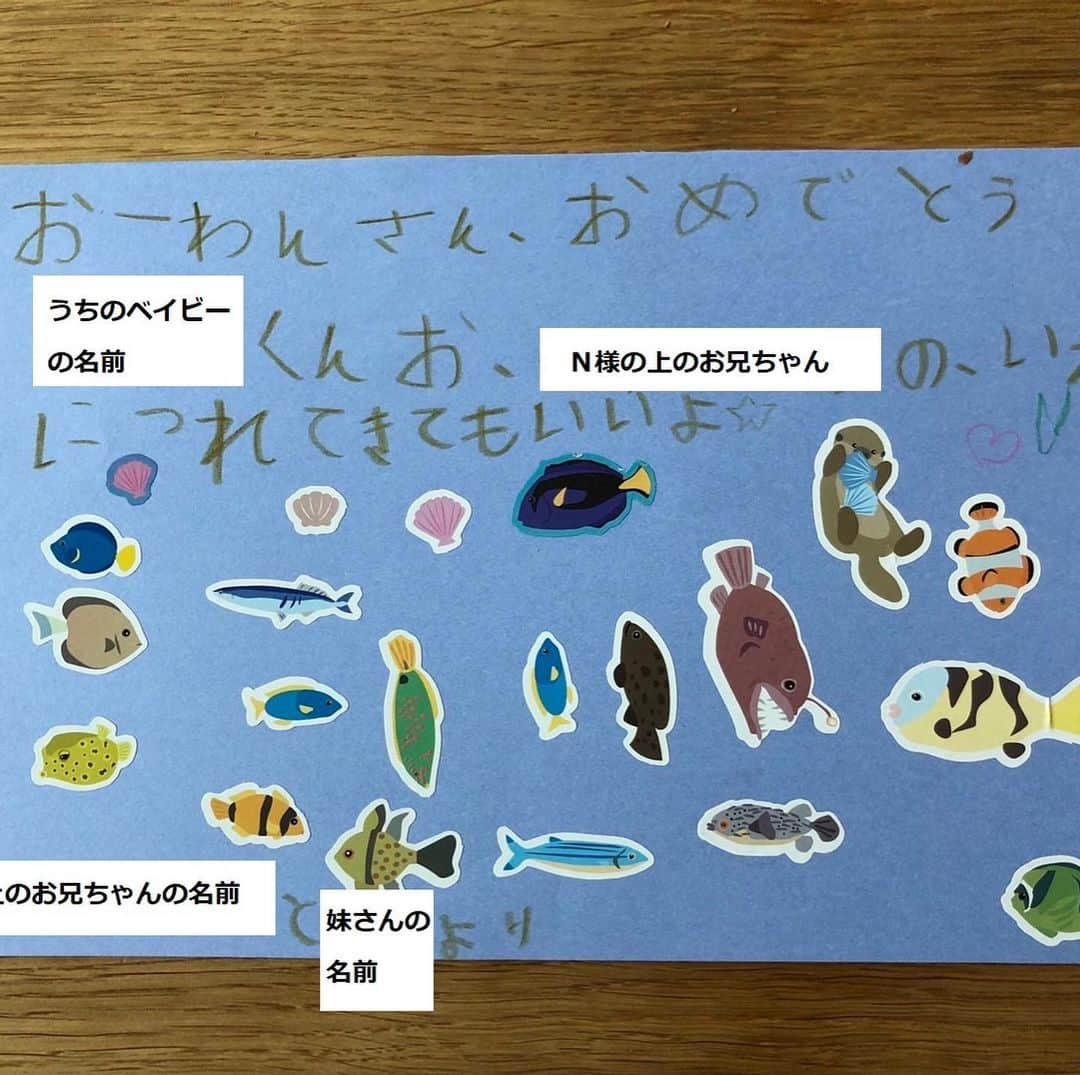 おーわんさん、おめでとう
うちのベイビー
の名前
くんお、
N様の上のお兄ちゃん
の、い
につれてきてもいいよ☆
上のお兄ちゃんの名前
と
妹さんの
名前
より